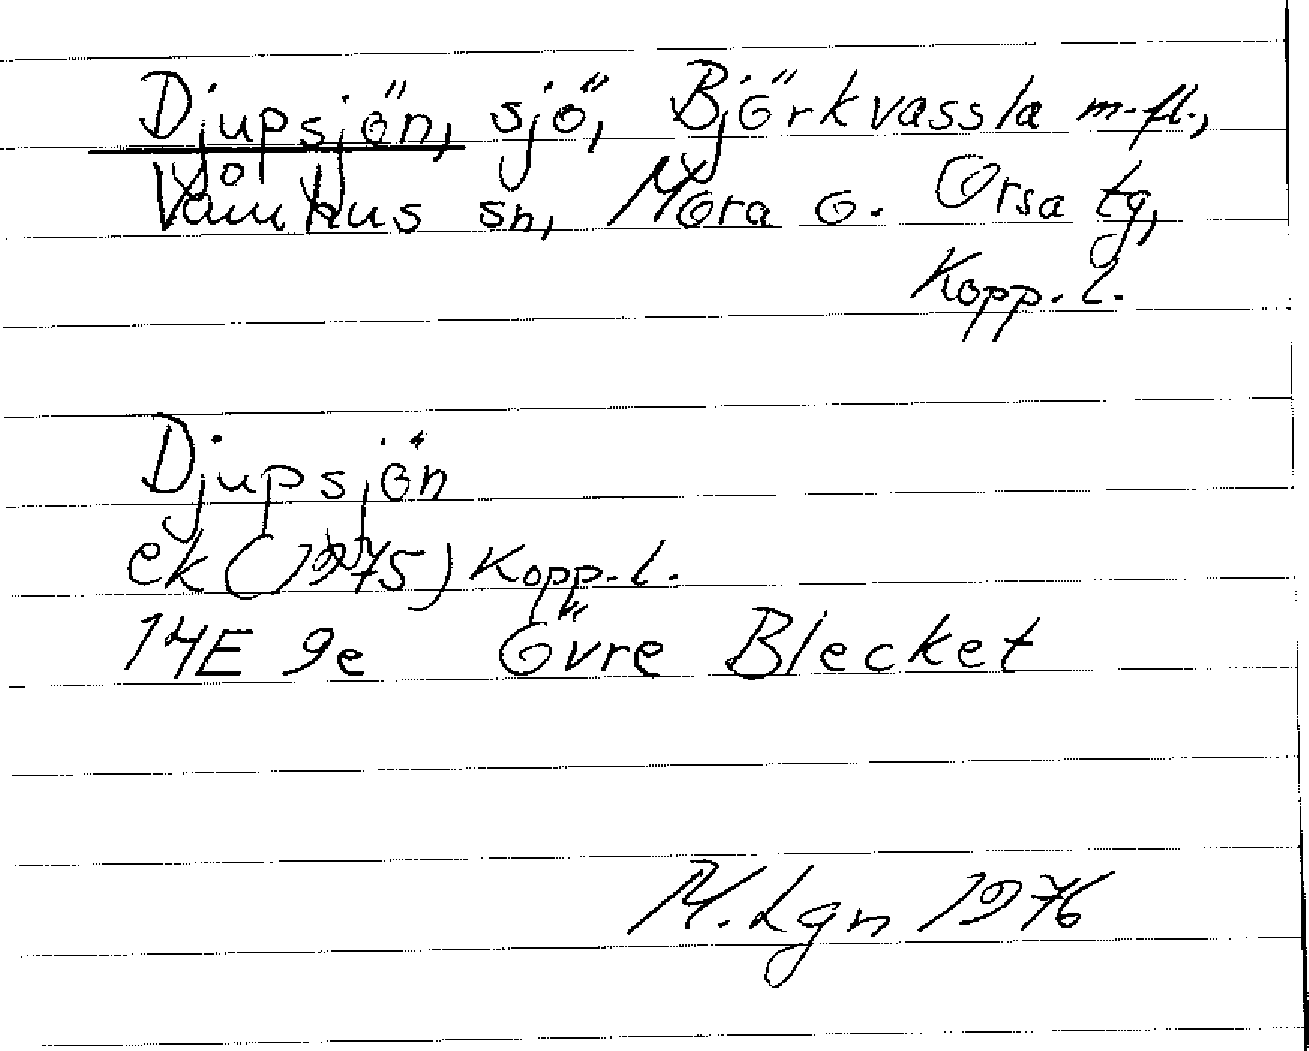 Djupsjön, sjö, Björkvassla m.fl.,
Våmhus sn, Mora o. Orsa tg,
Kopp.l.
Djupsjön
ek (1975) Kopp.l.
14E 9e Övre Blecket
M.Lgn 1976